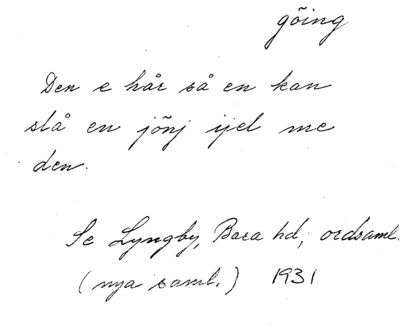 göing
Den e hår så en kan
slå en jönj ijel me
den.
Se Lyngby, Bara hd, ordsaml.
(nya saml.) 1931